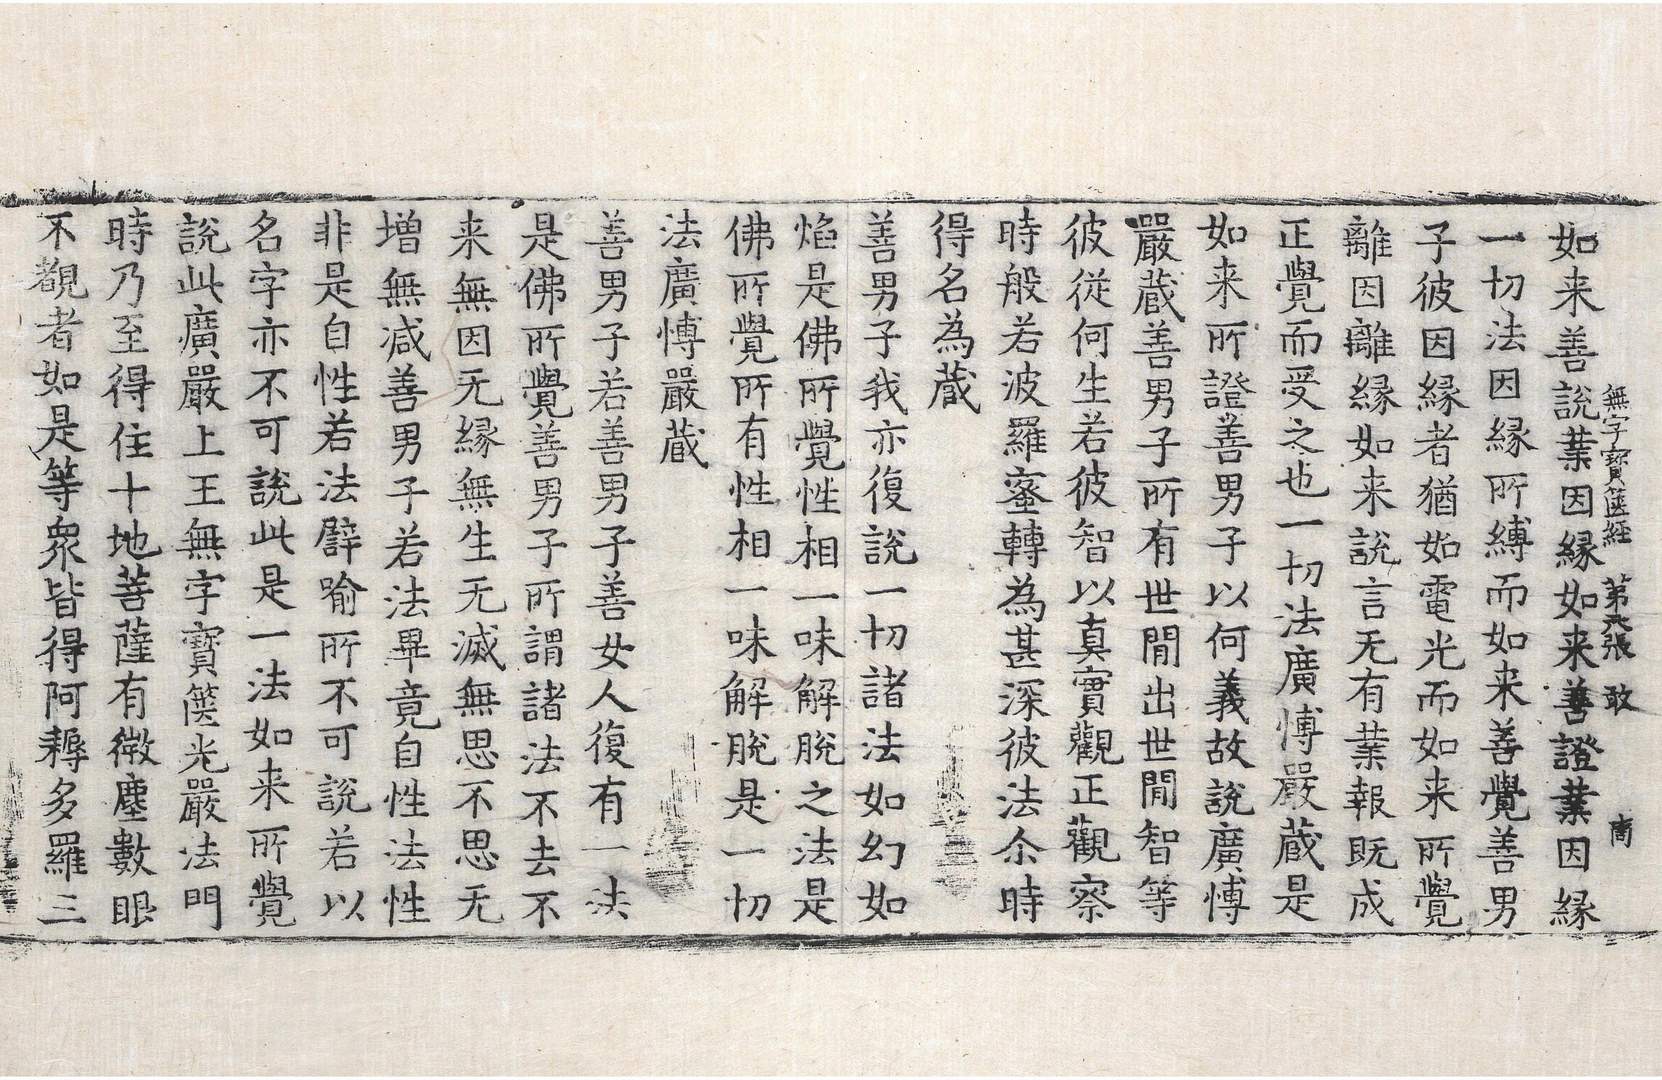 無字寶篋經 第六張 敢 商
如来善說業因縁如来善證業因縁
一切法因縁所縛而如来善覺善男
子彼因縁者猶如電光而如来所覺
離因離縁如来說言无有業報既成
正覺而受之也一切法廣愽嚴蔵是
如来所證善男子以何義故說廣愽
嚴蔵善男子所有世閒出世閒智等
彼從何生若彼智以真實觀正觀察
時般若波羅蜜轉為甚深彼法尒時
得名為蔵
善男子我亦復說一切諸法如幻如
焰是佛所覺性相一味解脫之法是
佛所覺所有性相一味解脫是一切
法廣愽嚴蔵
善男子若善男子善女人復有一法
是佛所覺善男子所謂諸法不去不
来無因无縁無生无滅無思不思无
增無减善男子若法畢竟自性法性
非是自性若法譬喻所不可說若以
名字亦不可說此是一法如来所覺
說此廣嚴上王無字寶篋光嚴法門
時乃至得住十地菩薩有微塵數眼
不覩者如是等衆皆得阿耨多羅三